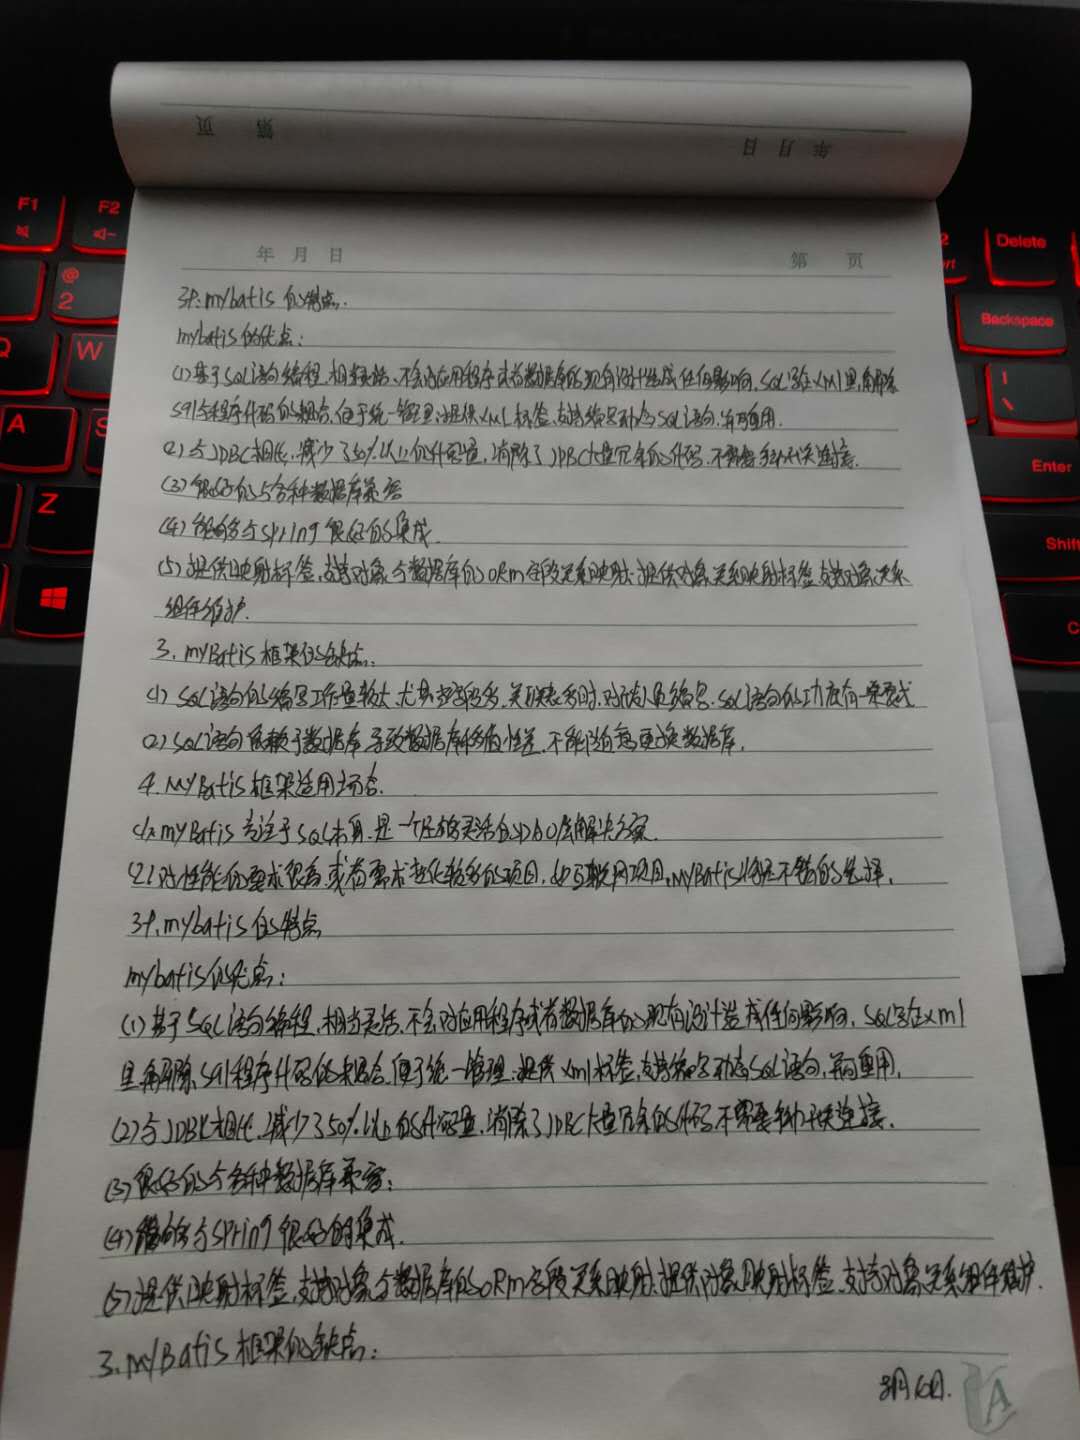 第 页
年 月 日
F1
F2
@
2
Q
W
A
S
Z
Delete
Backspace
|
\
Enter
Shift
C
年 月 日
第 页
34.mybatis的特点.
mybatis的优点:
(1)基于SQL语句编程,相当灵活,不会对应用程序或者数据库的现有设计造成任何影响,SQL写在XMl里,解除
sql与程序代码的耦合,便于统一管理;提供XML标签,支持编写动态SQL语句,并可重用.
(2)与JDBC相比,减少了50%以上的代码量,消除了JDBC大量冗余的代码,不需要手动开关连接.
(3)很好的与各种数据库兼容
(4)能够与spring很好的集成.
(5)提供映射标签,支持对象与数据库的ORm字段关系映射;提供对象关系映射标签,支持对象关系
组件维护.
3.myBatis框架的缺点.
(1)SQL语句的编写工作量较大,尤其字段多、关联表多时,对开发人员编写SQL语句的功底有一定要求
(2)SQL语句依赖于数据库,导致数据库移植性差,不能随意更换数据库.
4.MyBatis框架适用场合.
(1)myBatis专注于SQL本身,是一个足够灵活的DAO层解决方案.
(2)对性能的要求很高,或者需求变化较多的项目,如互联网项目,MyBatis将是不错的选择.
34.mybatis的特点
mybatis的优点:
(1)基于SQL语句编程,相当灵活,不会对应用程序或者数据库的现有设计造成任何影响,SQL写在xml
里,解除sql程序代码的耦合,便于统一管理;提供xml标签,支持编写动态SQL语句,并可重用.
(2)与JDBC相比,减少了50%以上的代码量,消除了JDBC大量冗余的代码,不需要手动开关连接.
(3)很好的与各种数据库兼容;
(4)能够与spring很好的集成.
(5)提供映射标签,支持对象与数据库的ORM字段关系映射;提供对象映射标签,支持对象关系组件维护.
3.myBatis框架的缺点:
A